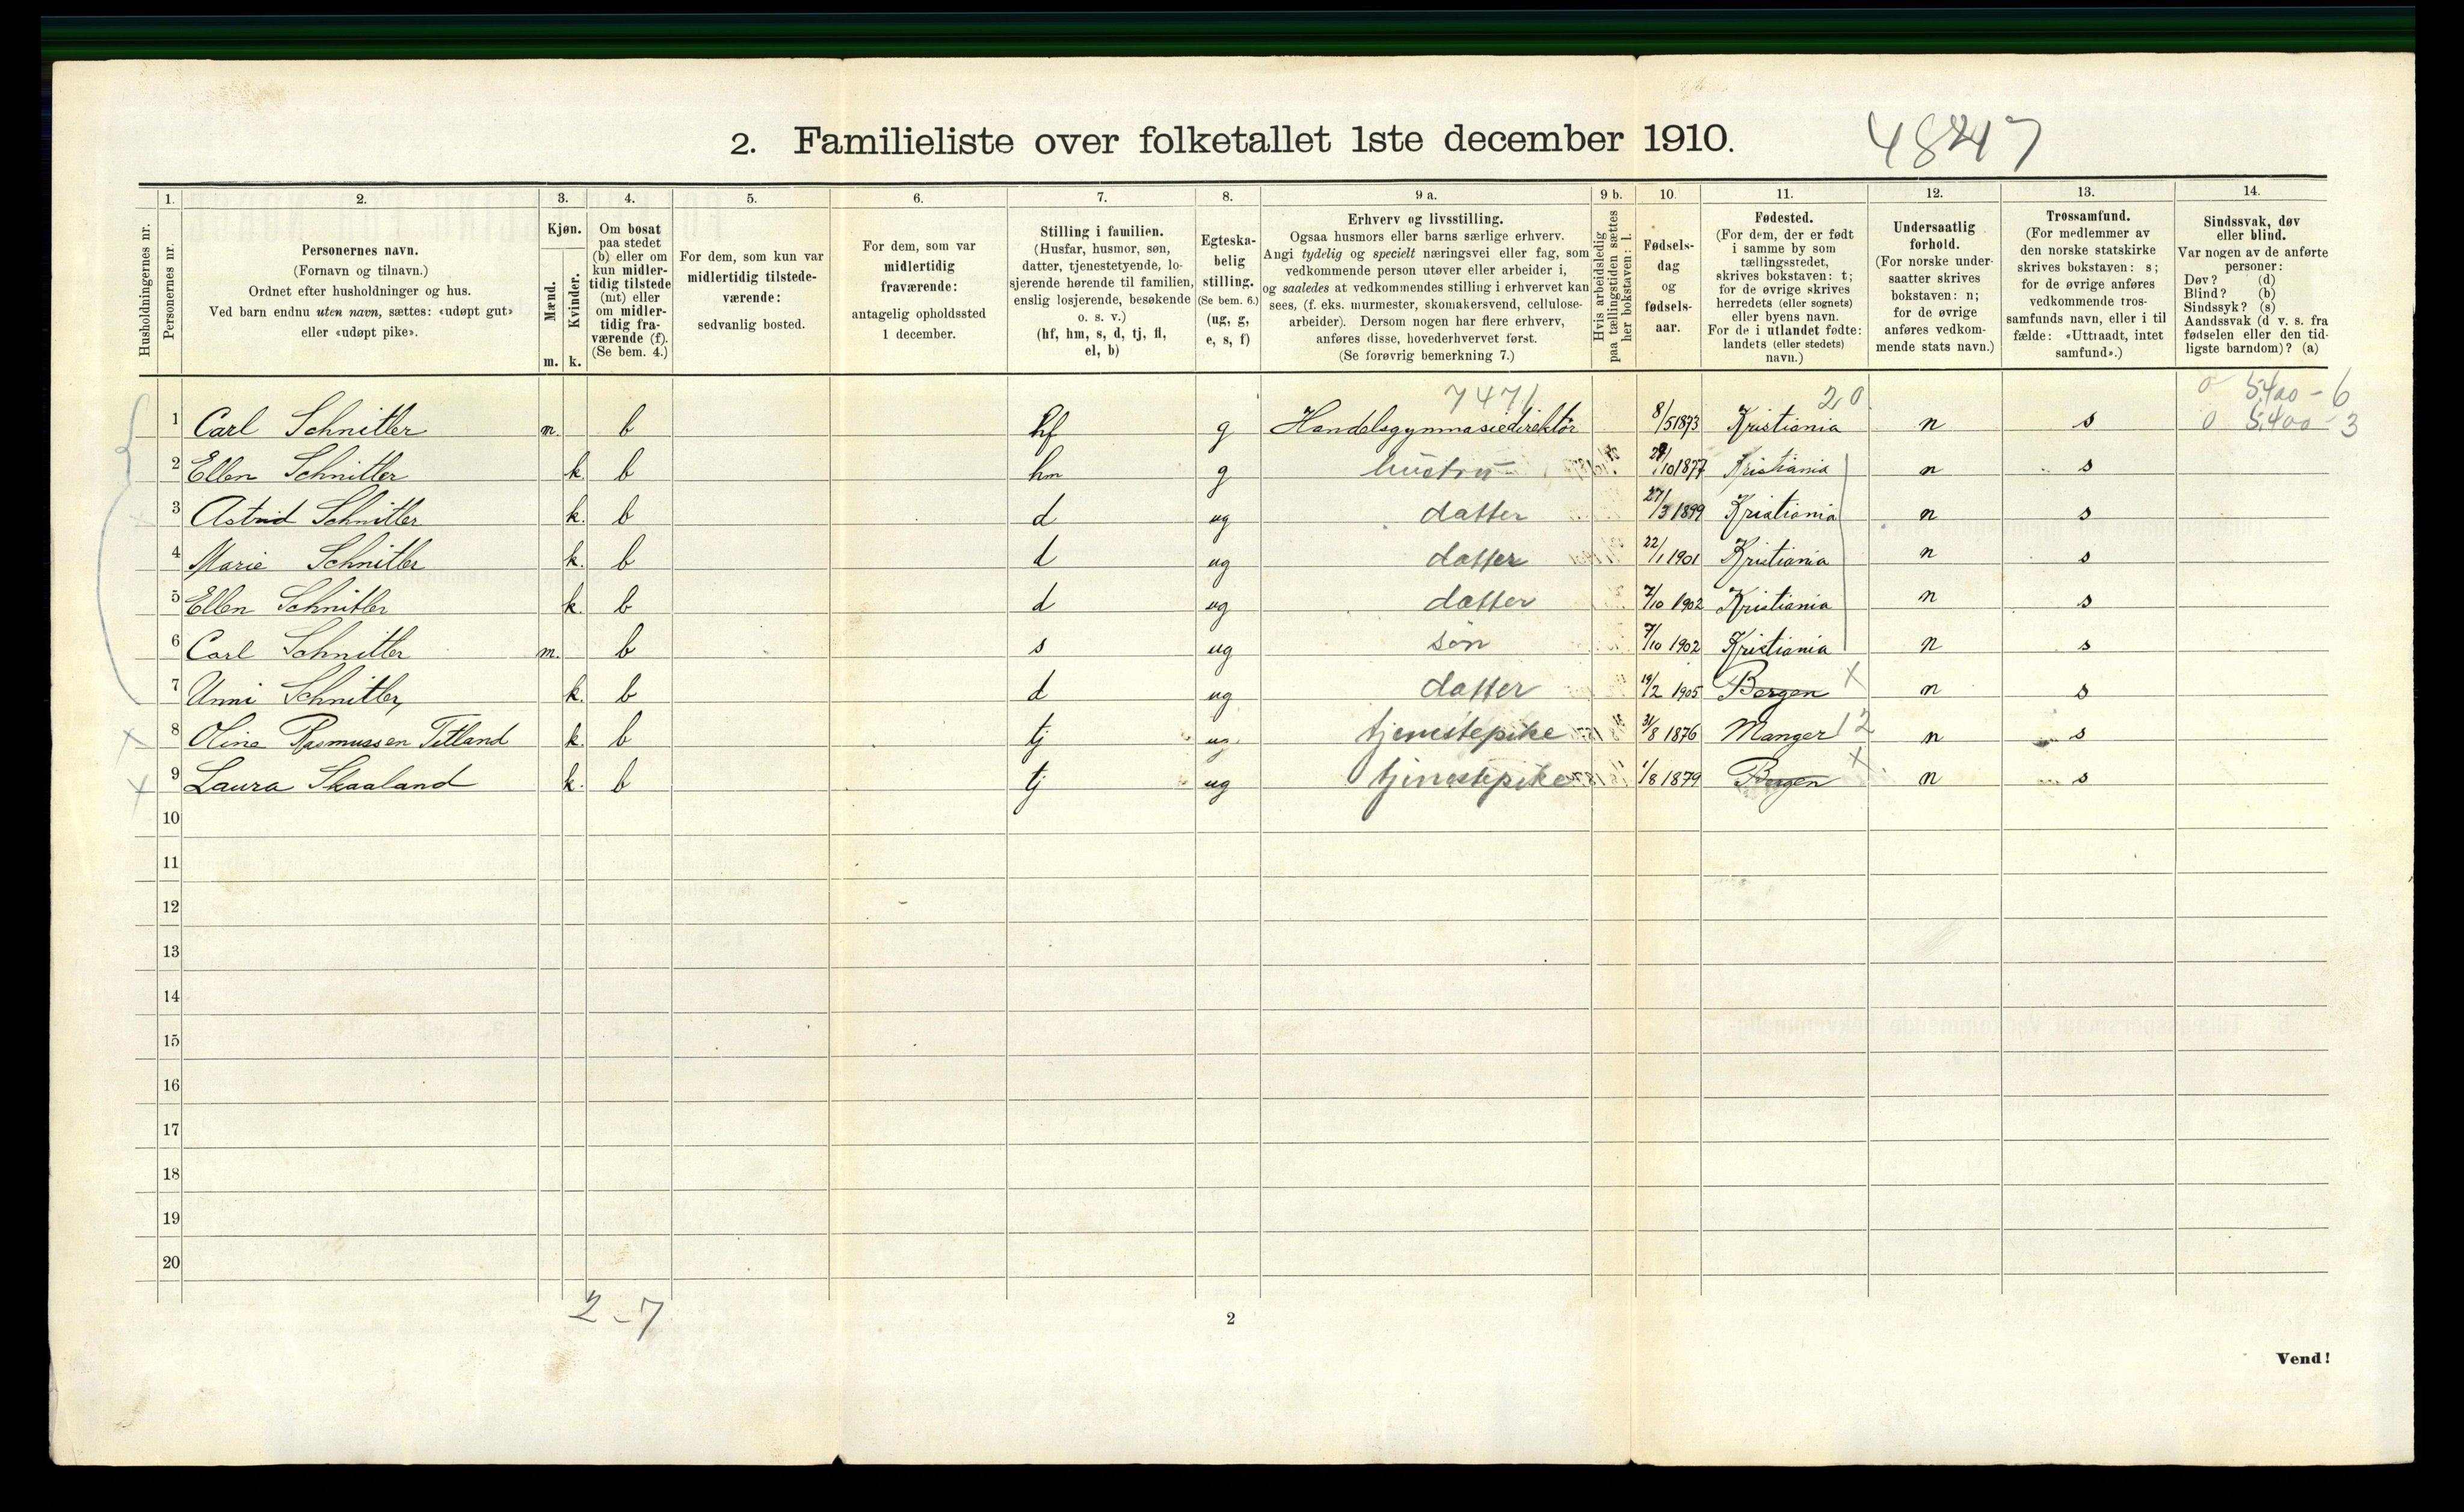 2. Familieliste over folketallet 1ste december 1910.
48247
Husholdningernes nr.
1. Personernes nr.
2. Personernes navn.
(Fornavn og tilnavn.)
Ordnet efter husholdninger og hus.
Ved barn endnu uten navn, sættes: «udøpt gut»
eller «udøpt pike».
3. Kjøn.
Mænd. m.
Kvinder. k.
4. Om bosat
paa stedet
(b) eller om
kun midler-
tidig tilstede
(mt) eller
om midler-
tidig fra-
værende (f).
(Se bem. 4.)
5. For dem, som kun var
midlertidig tilstede-
værende:
sedvanlig bosted.
6. For dem, som var
midlertidig
fraværende:
antagelig opholdssted
1 december.
7. Stilling i familien.
(Husfar, husmor, søn,
datter, tjenestetyende, lo-
sjerende hørende til familien,
enslig losjerende, besøkende
o. s. v.)
(hf, hm, s, d, tj, fl,
el, b)
8. Egteska-
belig
stilling.
(Se bem. 6.)
(ug, g,
e, s, f)
9 a. Erhverv og livsstilling.
Ogsaa husmors eller barns særlige erhverv.
Angi tydelig og specielt næringsvei eller fag, som
vedkommende person utøver eller arbeider i,
og saaledes at vedkommendes stilling i erhvervet kan
sees, (f. eks. murmester, skomakersvend, cellulose-
arbeider). Dersom nogen har flere erhverv,
anføres disse, hovederhvervet først.
(Se forøvrig bemerkning 7.)
9 b. Hvis arbeidsledig
paa tællingstiden sættes
her bokstaven: l.
10. Fødsels-
dag
og
fødsels-
aar.
11. Fødested.
(For dem, der er født
i samme by som
tællingsstedet,
skrives bokstaven: t;
for de øvrige skrives
herredets (eller sognets)
eller byens navn.
For de i utlandet fødte:
landets (eller stedets)
navn.)
12. Undersaatlig
forhold.
(For norske under-
saatter skrives
bokstaven: n;
for de øvrige
anføres vedkom-
mende stats navn.)
13. Trossamfund.
(For medlemmer av
den norske statskirke
skrives bokstaven: s;
for de øvrige anføres
vedkommende tros-
samfunds navn, eller i til
fælde: «Uttraadt, intet
samfund».)
14. Sindssvak, døv
eller blind.
Var nogen av de anførte
personer:
Døv? (d)
Blind? (b)
Sindssyk? (s)
Aandssvak (d v. s. fra
fødselen eller den tid-
ligste barndom)? (a)
7471 20 0 5400 - 6
1 Carl Schnitler m. b hf g Handelsgymnasiedirektör 8/5 1873 Kristiania n s 0 5400 - 3
2 Ellen Schnitler k. b hm g hustru /10 1877 Kristiania n s
3 Astrid Schnitler k. b d ug datter 27/3 1899 Kristiania n s
4 Marie Schnitler k. b d ug datter 22/1 1901 Kristiania n s
5 Ellen Schnitler k. b d ug datter 7/10 1902 Kristiania n s
6 Carl Schnitler m. b s ug søn 7/10 1902 Kristiania n s
7 Unni Schnitler, k. b d ug datter 19/2 1905 Bergen X n s
X 8 Oline Rasmussen Tetland k. b tj ug tjenestepike 31/8 1876 Manger 12 n s
X 9 Laura Skaaland k. b tj ug tjenestepike 1/8 1879 Bergen X n s
10
11
12
13
14
15
16
17
18
19
20
2 - 7
2
Vend!